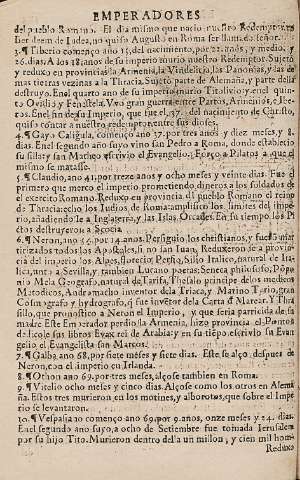 EMPERADORES
del pueblo Romano. El dia mismo que nacio nuestro Redemptor en
Bethleem de Iudea, no quiso Augusto en Roma ser llamado señor.
3. ¶ Tiberio començo año 15. del nacimiento, por 22. años, y medio, y
26. dias. A los 18. años de su imperio murio nuestro Redemptor. Sujetò
y reduxo en prouincias la Armenia, la Vindelicia, las Panonias, y las de
mas tierras vezinas a la Thracia. Sujetò parte de Alemaña, y parte della
destruyo. Enel quarto año de su imperio murio Titoliuio: y enel quin-
to Ouidio y Fenestela. Vuo gran guerra entre Partos, Armenios, e Ibe-
ros. Enel fin de su Imperio, que fue el. 37. del nacimiento de Christo,
quiso contar a nuestro redemptor entre sus dioses.
4. ¶ Gayo Caligula, començo año 37. por tres años y diez meses, y 8.
dias. Enel segundo año suyo vino san Pedro a Roma, donde establecio
su silla: y san Matheo escriuio el Euangelio. Forço a Pilatos a que el
mismo se matasse.
5. ¶ Claudio, año 41. por treze años y ocho meses y veinte dias. Fue el
primero que merco el imperio prometiendo dineros a los soldados de
el exercito Romano. Reduxo en prouincia del pueblo Romano el reyno
de Thracia: echo los Iudios de Roma: amplifico los limites del impe-
rio, añadiendole a Inglaterra, y las Islas Orcades. En su tiempo los Pi-
ctos destruyeron a Scocia.
6. ¶ Neron, año 54. por 14. años. Persiguio los christianos, y fueron mar
tirizados todos los Apostoles, si no san Iuan. Reduzeronse a prouin-
cia del imperio los Alpes, florecio Persio, Silio Italico, natural de Ita-
lica, junto a Seuilla, y tambien Lucano poetas: Seneca philosofo, Pompo
nio Mela Geografo, natural de Tarifa, Thesalo principe de los medicos
Metodicos, Andromacho inuentor dela Triaca, y Marino Tirio, gran
Cosmografo y hydrografo, que fue inuētor dela Carta d Marear. Y Thra
silo, que pronostico a Neron el Imperio, y que seria parricida de su
madre. Este Emperador perdio la Armenia, hizo prouincia del Ponto:
dedicole sus libros Euax rey de Arabia: y en su tiēpo escriuio su Euan
gelio el Euangelista san Marcos.
7. ¶ Galba año 68. por siete meses y siete dias. Este se alço, despues de
Neron, con el imperio en Irlanda.
8. ¶ Othon año 69. por tres meses, alçose tambien en Roma.
9. ¶ Vitelio ocho meses y cinco dias. Alçose como los otros en Alema
ña. Estos tres murieron en los motines, y alborotos, que sobre el Impe
rio se leuantaron.
10. ¶ Vespasiano començo año 69. por 9. años, onze meses y 24. dias.
Enel segundo año suyo, a ocho de Setiembre fue tomada Ierusalem
por su hijo Tito. Murieron dentro della un millon, y cien mil hom-
Reduxo